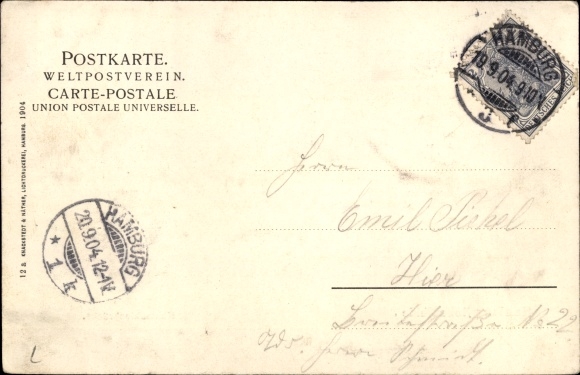 POSTKARTE.
WELTPOSTVEREIN.
CARTE-POSTALE
UNION POSTALE UNIVERSELLE.
12 a. KNACKSTEDT & NÄTHER, LICHTDRUCKEREI, HAMBURG. 1904
HAMBURG
19.9.04.9-10
HAMBURG
20.9.04.12-1
* 1 k
Herrn
Emil
Hier
Breitestraße No 22
Adr. Herrn Schmidt.